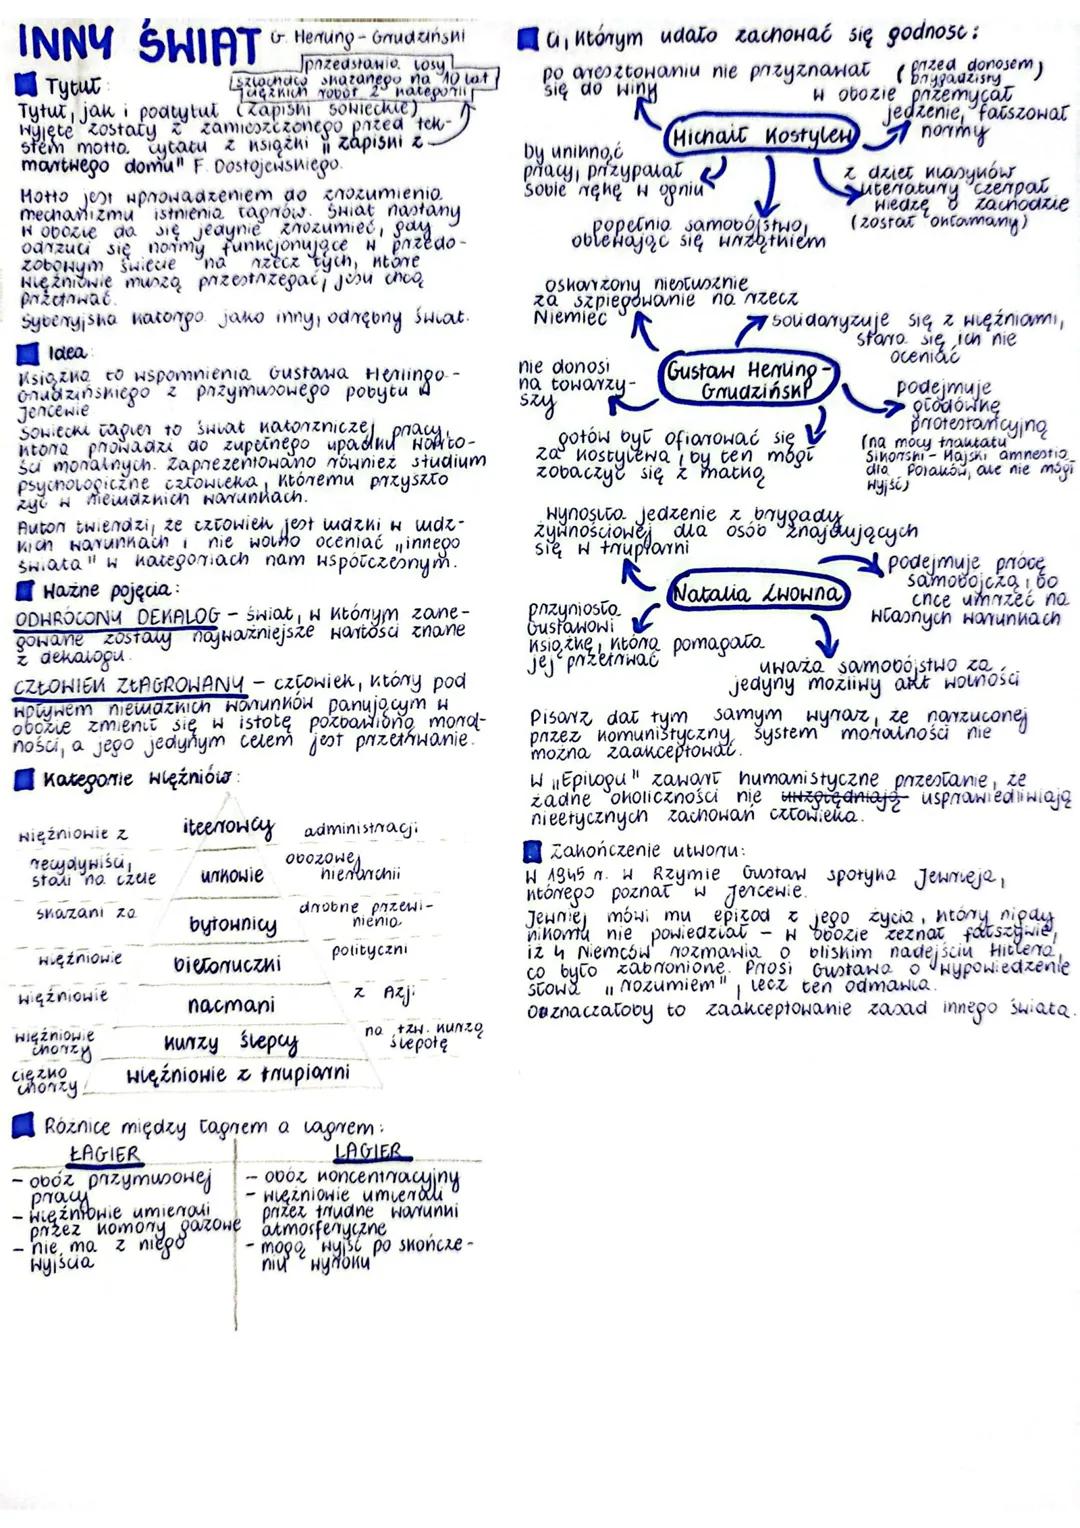 INNY ŚWIAT G. Herling-Grudziński
przedstawia losy
szlachcica skazanego na 10 lat
ciężkich robót 2 kategorii
Tytuł:
Tytuł, jak i podtytuł (zapiski sowieckie)
wyjęte zostały z zamieszczonego przed tek-
stem motta, cytatu z książki "zapiski z
martwego domu" F. Dostojewskiego.
Motto jest wprowadzeniem do zrozumienia
mechanizmu istnienia łagrów. Świat nastany
w obozie da się jedynie zrozumieć, gdy
odrzuci się normy funkcjonujące w przedo-
zobowym świecie na rzecz tych, które
więźniowie muszą przestrzegać, jeśli chcą
przetrwać.
Syberyjska katorga jako inny, odrębny świat.
Idea:
Książka to wspomnienia Gustawa Herlinga-
Grudzińskiego z przymusowego pobytu w
Jercewie
Sowiecki łagier to świat katorżniczej pracy,
która prowadzi do zupełnego upadku warto-
ści moralnych. Zaprezentowano również studium
psychologiczne człowieka, któremu przyszło
żyć w nieludzkich warunkach.
Autor twierdzi, że człowiek jest ludzki w ludz-
kich warunkach i nie wolno oceniać „innego
świata" w kategoriach nam współczesnym.
Ważne pojęcia:
ODWRÓCONY DEKALOG – świat, w którym zane-
gowane zostały najważniejsze wartości znane
z dekalogu.
CZŁOWIEK ZŁAGROWANY – człowiek, który pod
wpływem nieludzkich warunków panującym w
obozie zmienił się w istotę pozbawioną moral-
ności, a jego jedynym celem jest przetrwanie.
Kategorie więźniów:
więźniowie z iteerowcy administracji
recydywiści, stali na czele urkowie obozowej hierarchii
skazani za bytownicy drobne przewi-
nienia
więźniowie biełoruczki polityczni
więźniowie nacmani z Azji
więźniowie chorzy kurzy ślepcy na tzw. kurzą ślepotę
ciężko chorzy więźniowie z trupiarni
Różnice między łagrem a lagrem:
ŁAGIER
- obóz przymusowej
pracy
- więźniowie umierali
przez komory gazowe
- nie ma z niego
wyjścia
LAGIER
- obóz koncentracyjny
- więźniowie umierali
przez trudne warunki
atmosferyczne
- mogą wyjść po skończe-
niu wyroku
Ci, którym udało zachować się godność:
po aresztowaniu nie przyznawał
się do winy
(przed donosem
brygadzisty)
w obozie przemycał
jedzenie, fałszował
normy
Michaił Kostylew
by uniknąć
pracy, przypalał
sobie rękę w ogniu
z dzieł klasyków
literatury czerpał
wiedzę o zachodzie
(został okłamany)
popełnia samobójstwo,
oblewając się wrzątkiem
oskarżony niesłusznie
za szpiegowanie na rzecz
Niemiec
solidaryzuje się z więźniami,
stara się ich nie
oceniać
nie donosi
na towarzy-
szy
Gustaw Herling-
Grudziński
podejmuje
głodówkę
protestancyjną
(na mocy traktatu
Sikorski-Majski amnestia
dla Polaków, ale nie mógł
wyjść)
gotów był ofiarować się
za Kostylewa, by ten mógł
zobaczyć się z matką
wynosiła jedzenie z brygady
żywnościowej dla osób znajdujących
się w trupiarni
podejmuje próbę
samobójczą, bo
chce umrzeć na
własnych warunkach
Natalia Lwowna
przyniosła
Gustawowi
książkę, która pomagała
jej przetrwać
uważa samobójstwo za
jedyny możliwy akt wolności
Pisarz dał tym samym wyraz, że narzuconej
przez komunistyczny system moralności nie
można zaakceptować.
W „Epilogu" zawarł humanistyczne przesłanie, że
żadne okoliczności nie uwzględniają usprawiedliwiają
nieetycznych zachowań człowieka.
Zakończenie utworu:
W 1945 r. w Rzymie Gustaw spotyka Jewrieja,
którego poznał w Jercewie.
Jewriej mówi mu epizod z jego życia, który nigdy
nikomu nie powiedział – w obozie zeznał fałszywie,
iż 4 Niemców rozmawia o bliskim nadejściu Hitlera,
co było zabronione. Prosi Gustawa o wypowiedzenie
słowa „rozumiem", lecz ten odmawia.
Oznaczałoby to zaakceptowanie zasad innego świata.